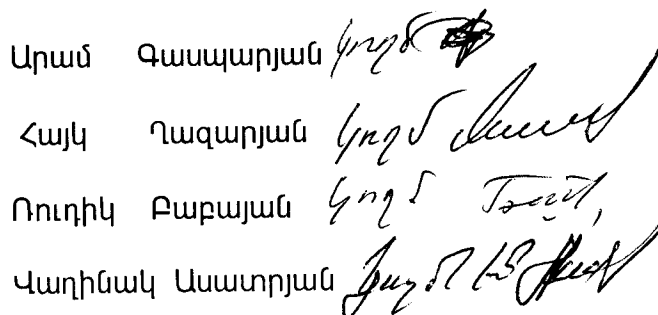 Արամ Գասպարյան կողմ
Հայկ Ղազարյան կողմ
Ռուդիկ Բաբայան կողմ
Վաղինակ Ասատրյան կողմ